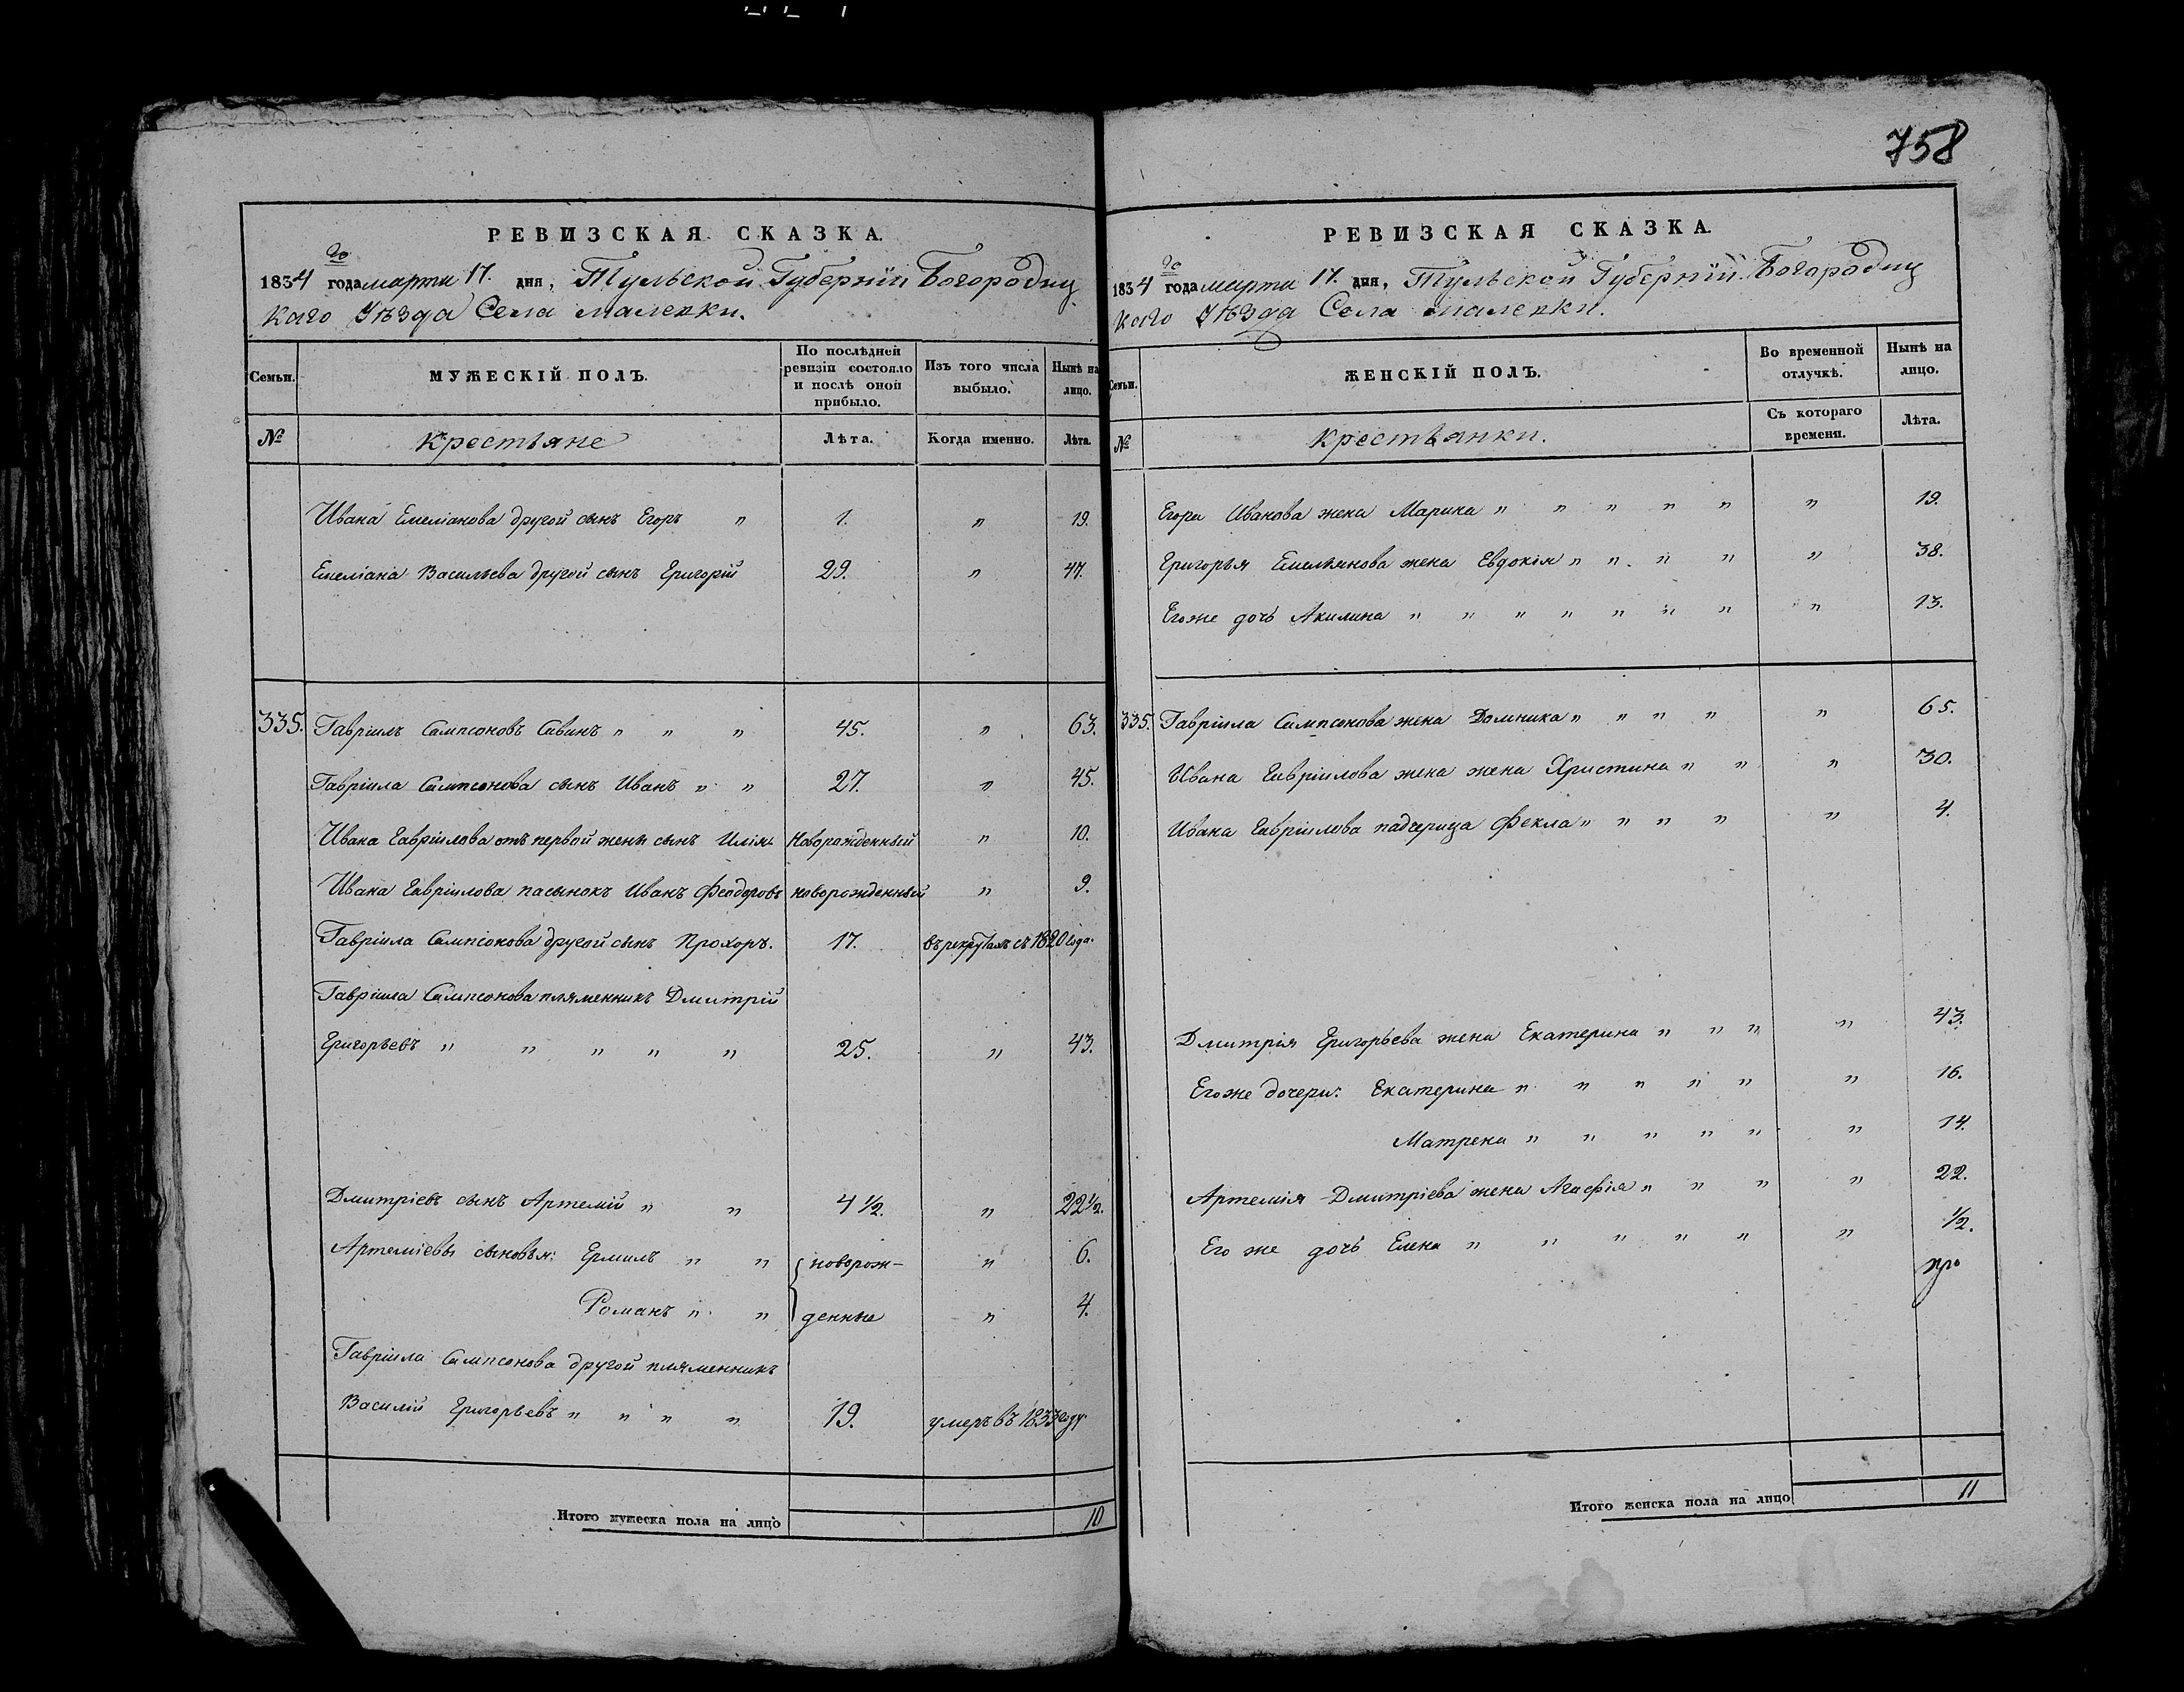 758
РЕВИЗСКАЯ СКАЗКА.
1834 го года марта 17. дня, Тульской Губерніи Богородиц
каго Уѣзда Села малевки.
Семьи.
МУЖЕСКІЙ ПОЛЪ.
По послѣдней
ревизіи состояло
и послѣ оной
прибыло.
Изъ того числа
выбыло.
Нынѣ на
лицо.
№
Крестьяне
Лѣта.
Когда именно.
Лѣта.
Ивана Емеліанова другой сынъ Егоръ " 1. " 19.
Емеліана Васильева другой сынъ Григорій 29. " 47.
335. Гавріилъ Сампсоновъ Савинъ " " " 45. " 63.
Гавріила Сампсонова сынъ Иванъ " " 27. " 45.
Ивана Гавріилова отъ первой жены сынъ Илія Новорожденный " 10.
Ивана Гавріилова пасынокъ Иванъ Феодоровъ новорожденный " 9.
Гавріила Сампсонова другой сынъ Прохоръ. 17. въ рекрутахъ съ 1820 года.
Гавріила Сампсонова пляменникъ Дмитрій
Григорьевъ " " " " " 25. " 43.
Дмитріевъ сынъ Артемій " " 4 1/2. " 22 1/2.
Артеміевы сыновья: Ермилъ " " новорож- " 6.
Романъ " " денные " 4.
Гавріила Сампсонова другой пляменникъ
Василій Григорьевъ " " " " 19. умеръ въ 1833 году.
Итого мужеска пола на лицо 10
РЕВИЗСКАЯ СКАЗКА.
1834 го года марта 17. дня, Тульской Губерніи Богородиц
каго Уѣзда Села малевки.
Семьи.
ЖЕНСКІЙ ПОЛЪ.
Во временной
отлучкѣ.
Нынѣ на
лицо.
№
Крестьянки.
Съ котораго
времени.
Лѣта.
Егора Иванова жена Марина " " " " " " 19.
Григорья Емельянова жена Евдокія " " " " " 38.
Егоже дочь Акилина " " " " " " " " 13.
335. Гавріила Сампсонова жена Домника " " " " " 65.
Ивана Гавріилова жена жена Христина " " " 30.
Ивана Гавріилова падчерица Фекла " " " " " 4.
Дмитрія Григорьева жена Екатерина " " " " 43.
Егоже дочери: Екатерина " " " " " " 16.
Матрена " " " " " " 14.
Артемія Дмитріева жена Агафія " " " " 22.
Его же дочь Елена " " " " " " 1/2.
Итого женска пола на лицо 11